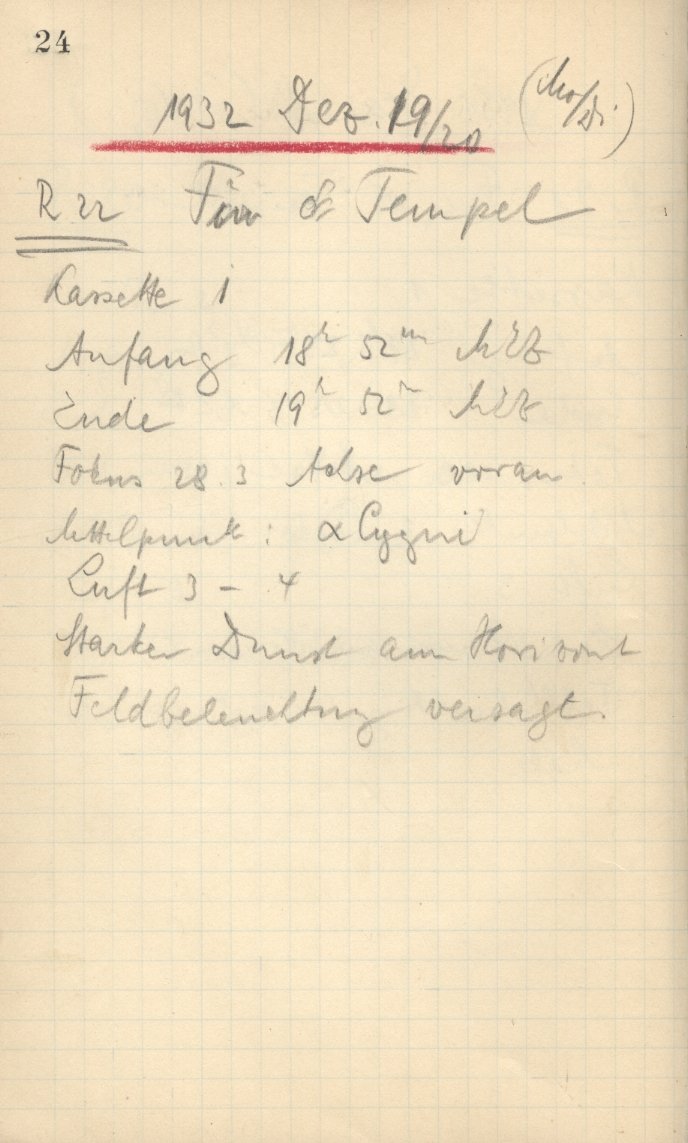 24
1932 Dez. 19/20 (Mo/Di)
R 22 Fin & Tempel
Kassette 1
Anfang 18h 52m MEZ
Ende 19h 52m MEZ
Fokus 28.3 Achse voran
Mittelpunkt: α Cygni
Luft 3 - 4
Starker Dunst am Horizont
Feldbeleuchtung versagt.